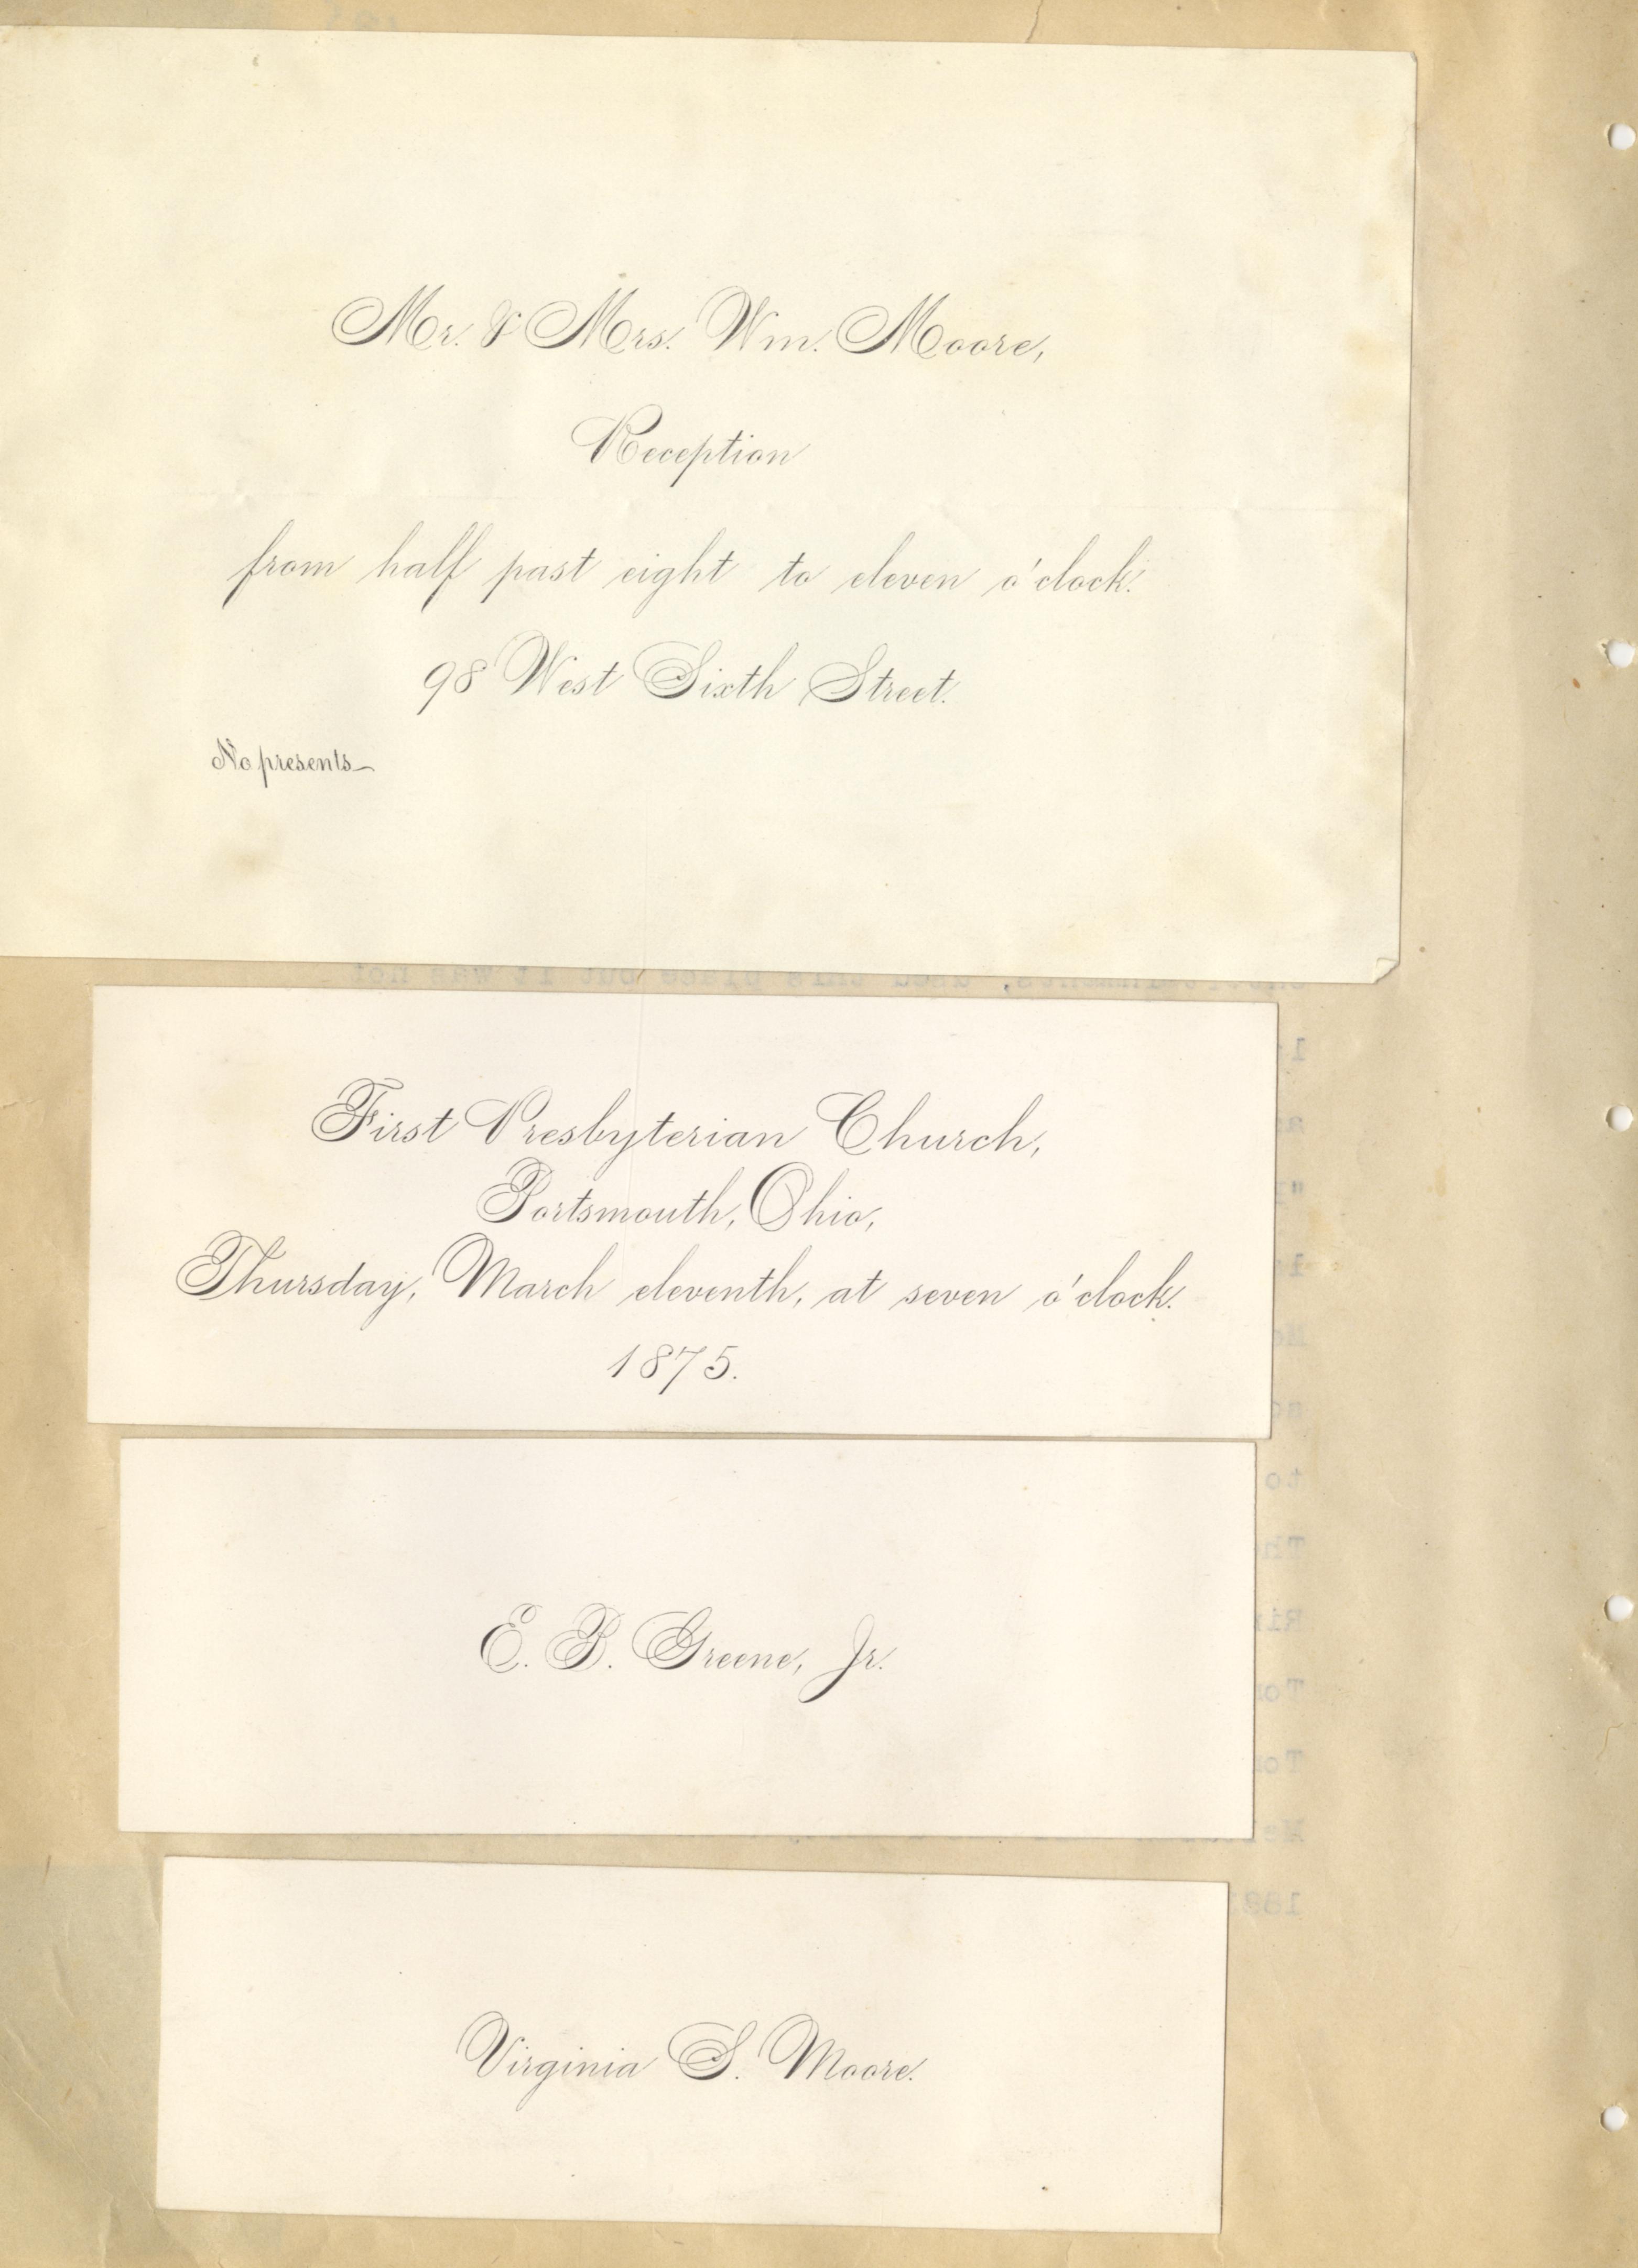 Mr. & Mrs. Wm. Moore,
Reception
from half past eight to eleven o'clock.
98 West Sixth Street.
No presents
First Presbyterian Church,
Portsmouth, Ohio,
Thursday, March eleventh, at seven o'clock.
1875.
E. B. Greene, Jr.
Virginia S. Moore.